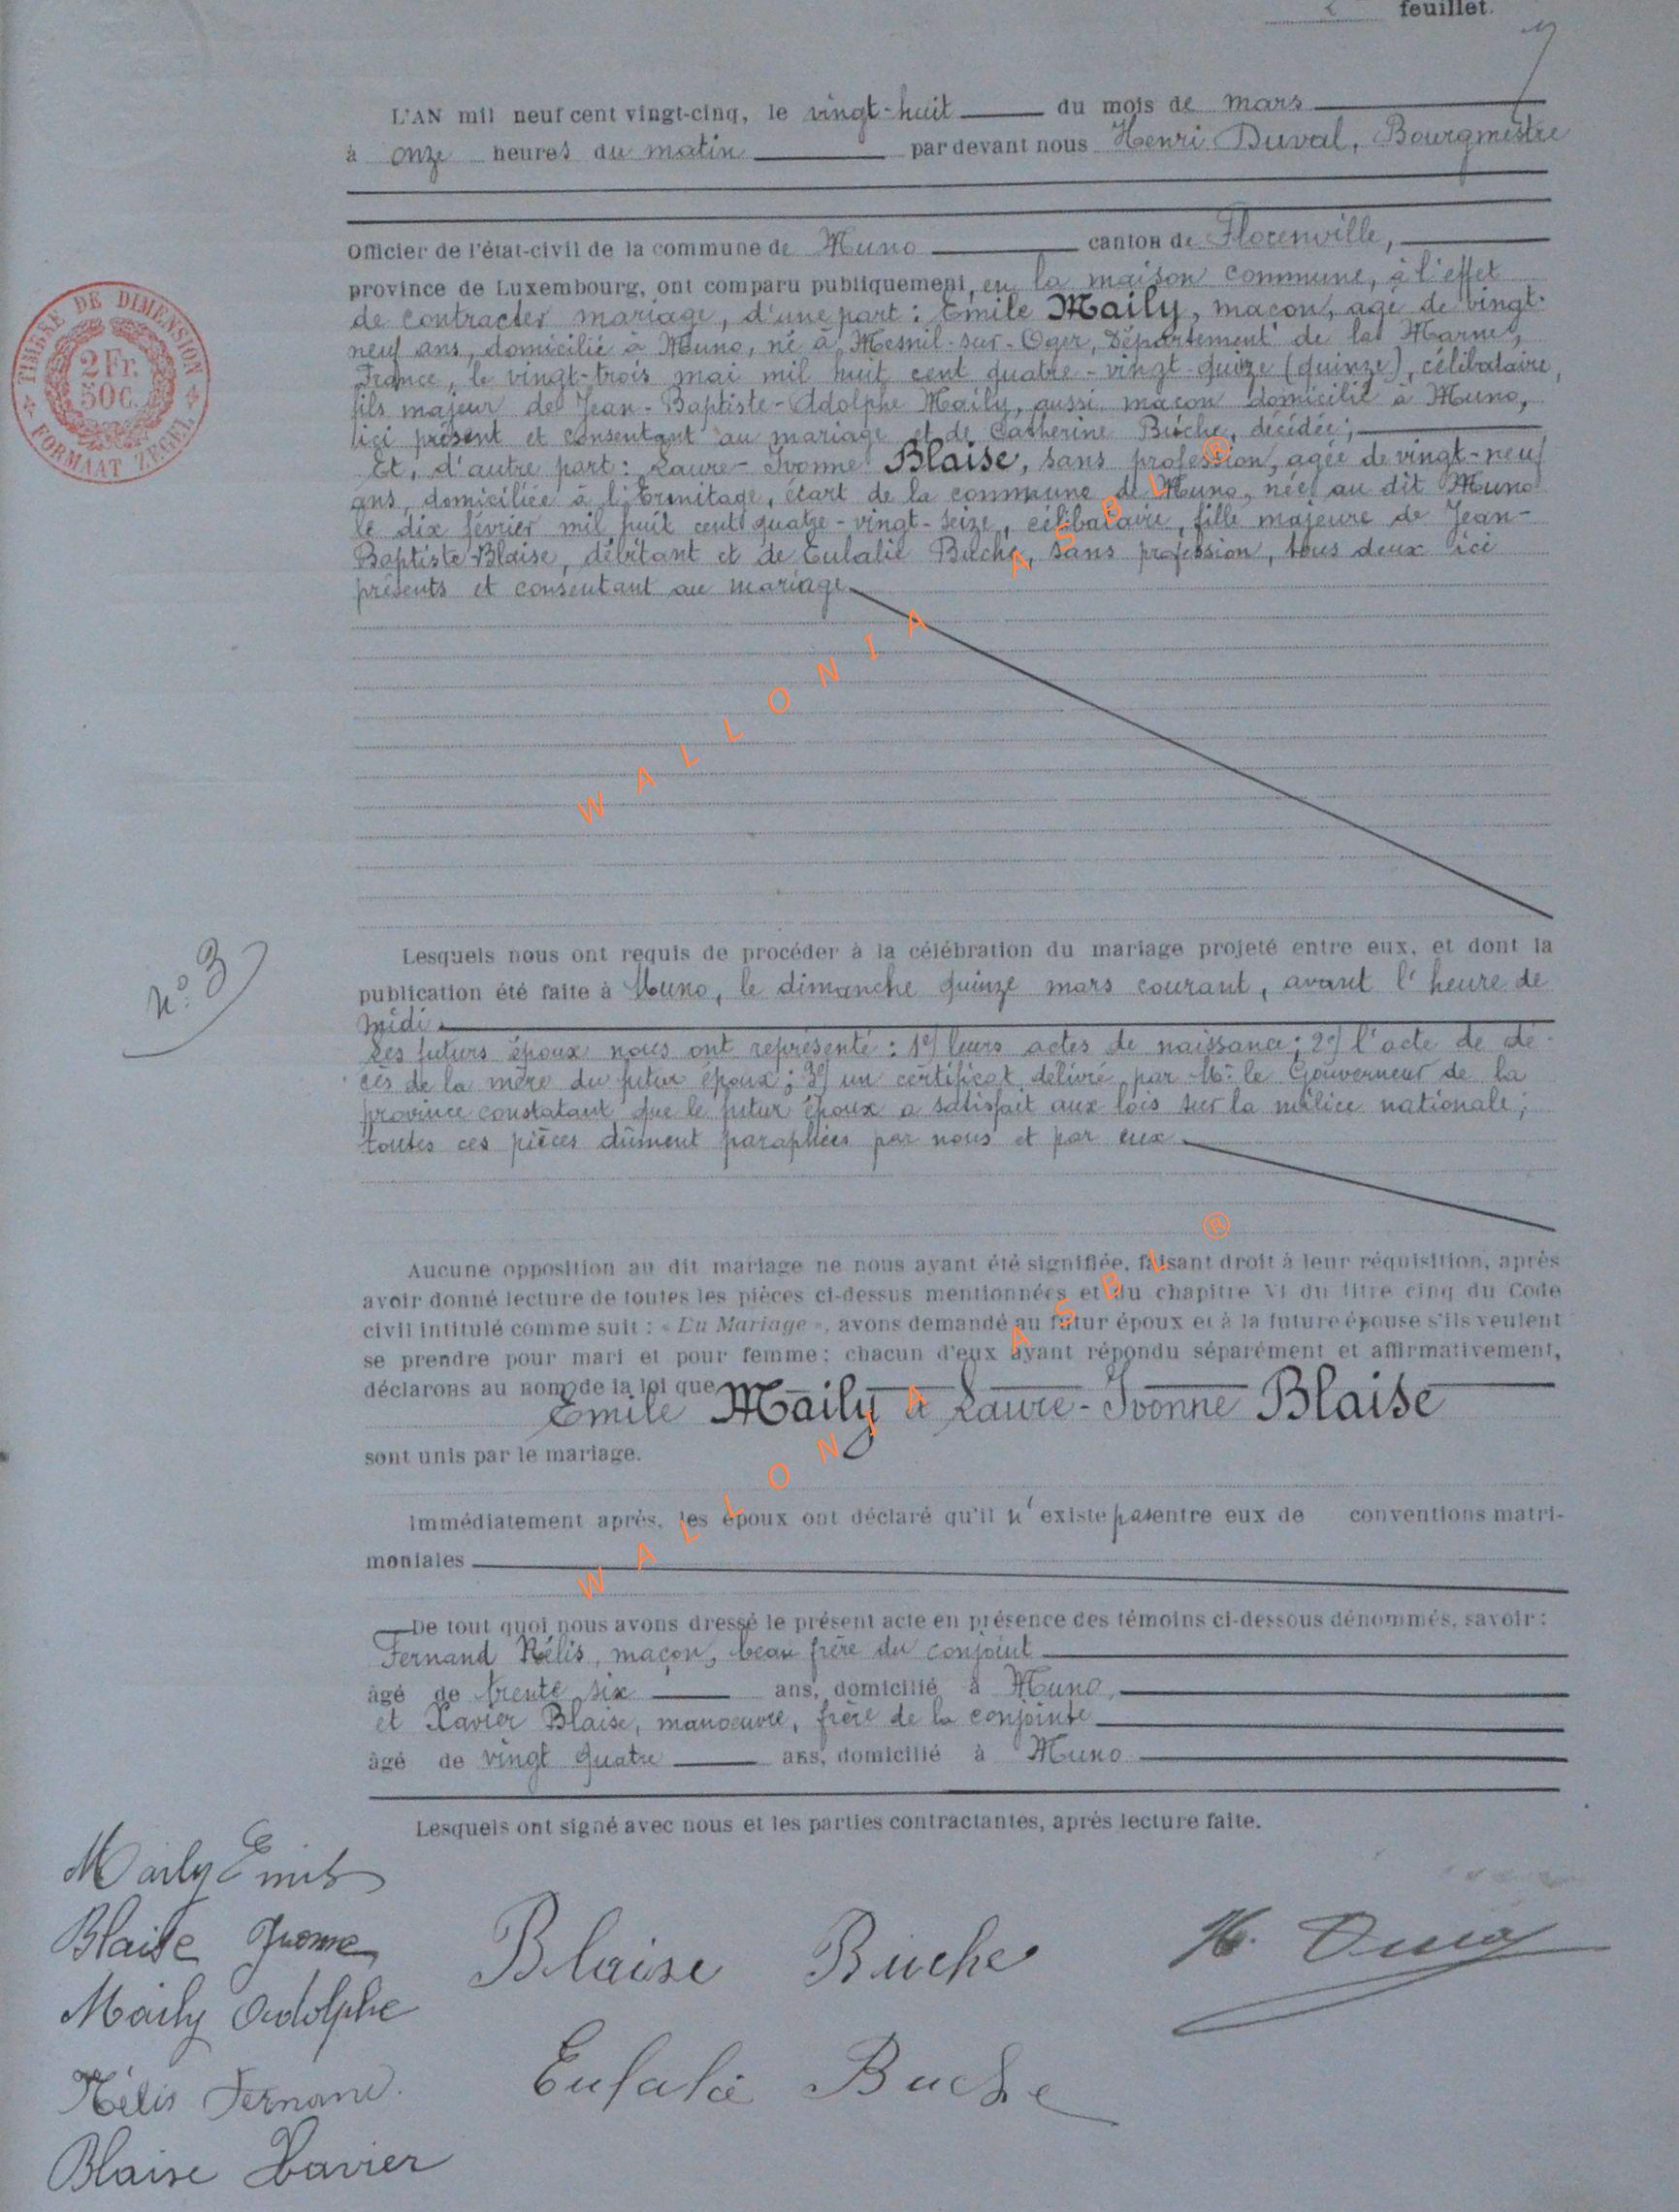 feuillet.
7
L'AN mil neuf cent vingt-cinq, le vingt-huit du mois de mars
à onze heures du matin par devant nous Henri Duval, Bourgmestre
Officier de l'état-civil de la commune de Muno canton de Florenville,
province de Luxembourg, ont comparu publiquement, en la maison commune, à l'effet
de contracter mariage, d'une part : Emile Maily, maçon, agé de vingt-
neuf ans, domicilié à Muno, né à Mesnil-sur-Oger, Département de la Marne,
France, le vingt-trois mai mil huit cent quatre-vingt-quize (quinze), célibataire,
fils majeur de Jean-Baptiste-Adolphe Maily, aussi maçon domicilié à Muno,
ici présent et consentant au mariage et de Catherine Büche, décédée ;
Et, d'autre part : Laure-Ivonne Blaise, sans profession, agée de vingt-neuf
ans, domiciliée à l'Ermitage, écart de la commune de Muno, née au dit Muno
le dix février mil huit cent quatre-vingt-seize, célibataire, fille majeure de Jean-
Baptiste Blaise, débitant et de Eulalie Buche, sans profession, tous deux ici
présents et consentant au mariage
TIMBRE DE DIMENSION
2 Fr.
50 C.
FORMAAT ZEGEL
WALLONIA ASBL ®
n° 3
Lesquels nous ont requis de procéder à la célébration du mariage projeté entre eux, et dont la
publication été faite à Muno, le dimanche quinze mars courant, avant l'heure de
midi.
Les futurs époux nous ont représenté : 1°) leurs actes de naissance ; 2°) l'acte de dé-
cès de la mère du futur époux ; 3°) un certificat délivré par Mr le Gouverneur de la
province constatant que le futur époux a satisfait aux lois sur la milice nationale ;
toutes ces pièces dûment paraphées par nous et par eux
Aucune opposition au dit mariage ne nous ayant été signifiée, faisant droit à leur réquisition, après
avoir donné lecture de toutes les pièces ci-dessus mentionnées et du chapitre VI du titre cinq du Code
civil intitulé comme suit : « Du Mariage », avons demandé au futur époux et à la future épouse s'ils veulent
se prendre pour mari et pour femme : chacun d'eux ayant répondu séparément et affirmativement,
déclarons au nom de la loi que
Emile Maily et Laure-Ivonne Blaise
sont unis par le mariage.
Immédiatement après, les époux ont déclaré qu'il n'existe pas entre eux de conventions matri-
moniales
WALLONIA ASBL ®
De tout quoi nous avons dressé le présent acte en présence des témoins ci-dessous dénommés, savoir :
Fernand Nélis, maçon, beau frère du conjoint
âgé de trente six ans, domicilié à Muno,
et Xavier Blaise, manoeuvre, frère de la conjointe
âgé de vingt quatre ans, domicilié à Muno
Lesquels ont signé avec nous et les parties contractantes, après lecture faite.
Maily Emile
Blaise Yvonne
Maily Adolphe
Nélis Fernand.
Blaise Xavier
Blaise Buche
Eulalie Buche
H. Duval